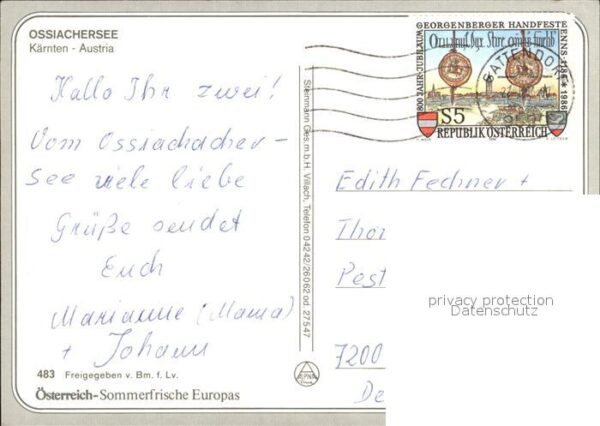 OSSIACHERSEE
Kärnten - Austria
Hallo Ihr zwei!
Vom Ossiachacher-
See viele liebe
Grüße sendet
Euch
Marianne (Mama)
+ Johann
483 Freigegeben v. Bm. f. Lv.
Österreich-Sommerfrische Europas
Steinmann Ges.m.b.H. Villach, Telefon 04242/26062 od. 27547
800 JAHR-JUBILÄUM GEORGENBERGER HANDFESTE
ENNS 1186 * 1986
S5
REPUBLIK ÖSTERREICH
GATTENDORF
Edith Fechner +
Thor
Pest
7200
De
privacy protection
Datenschutz